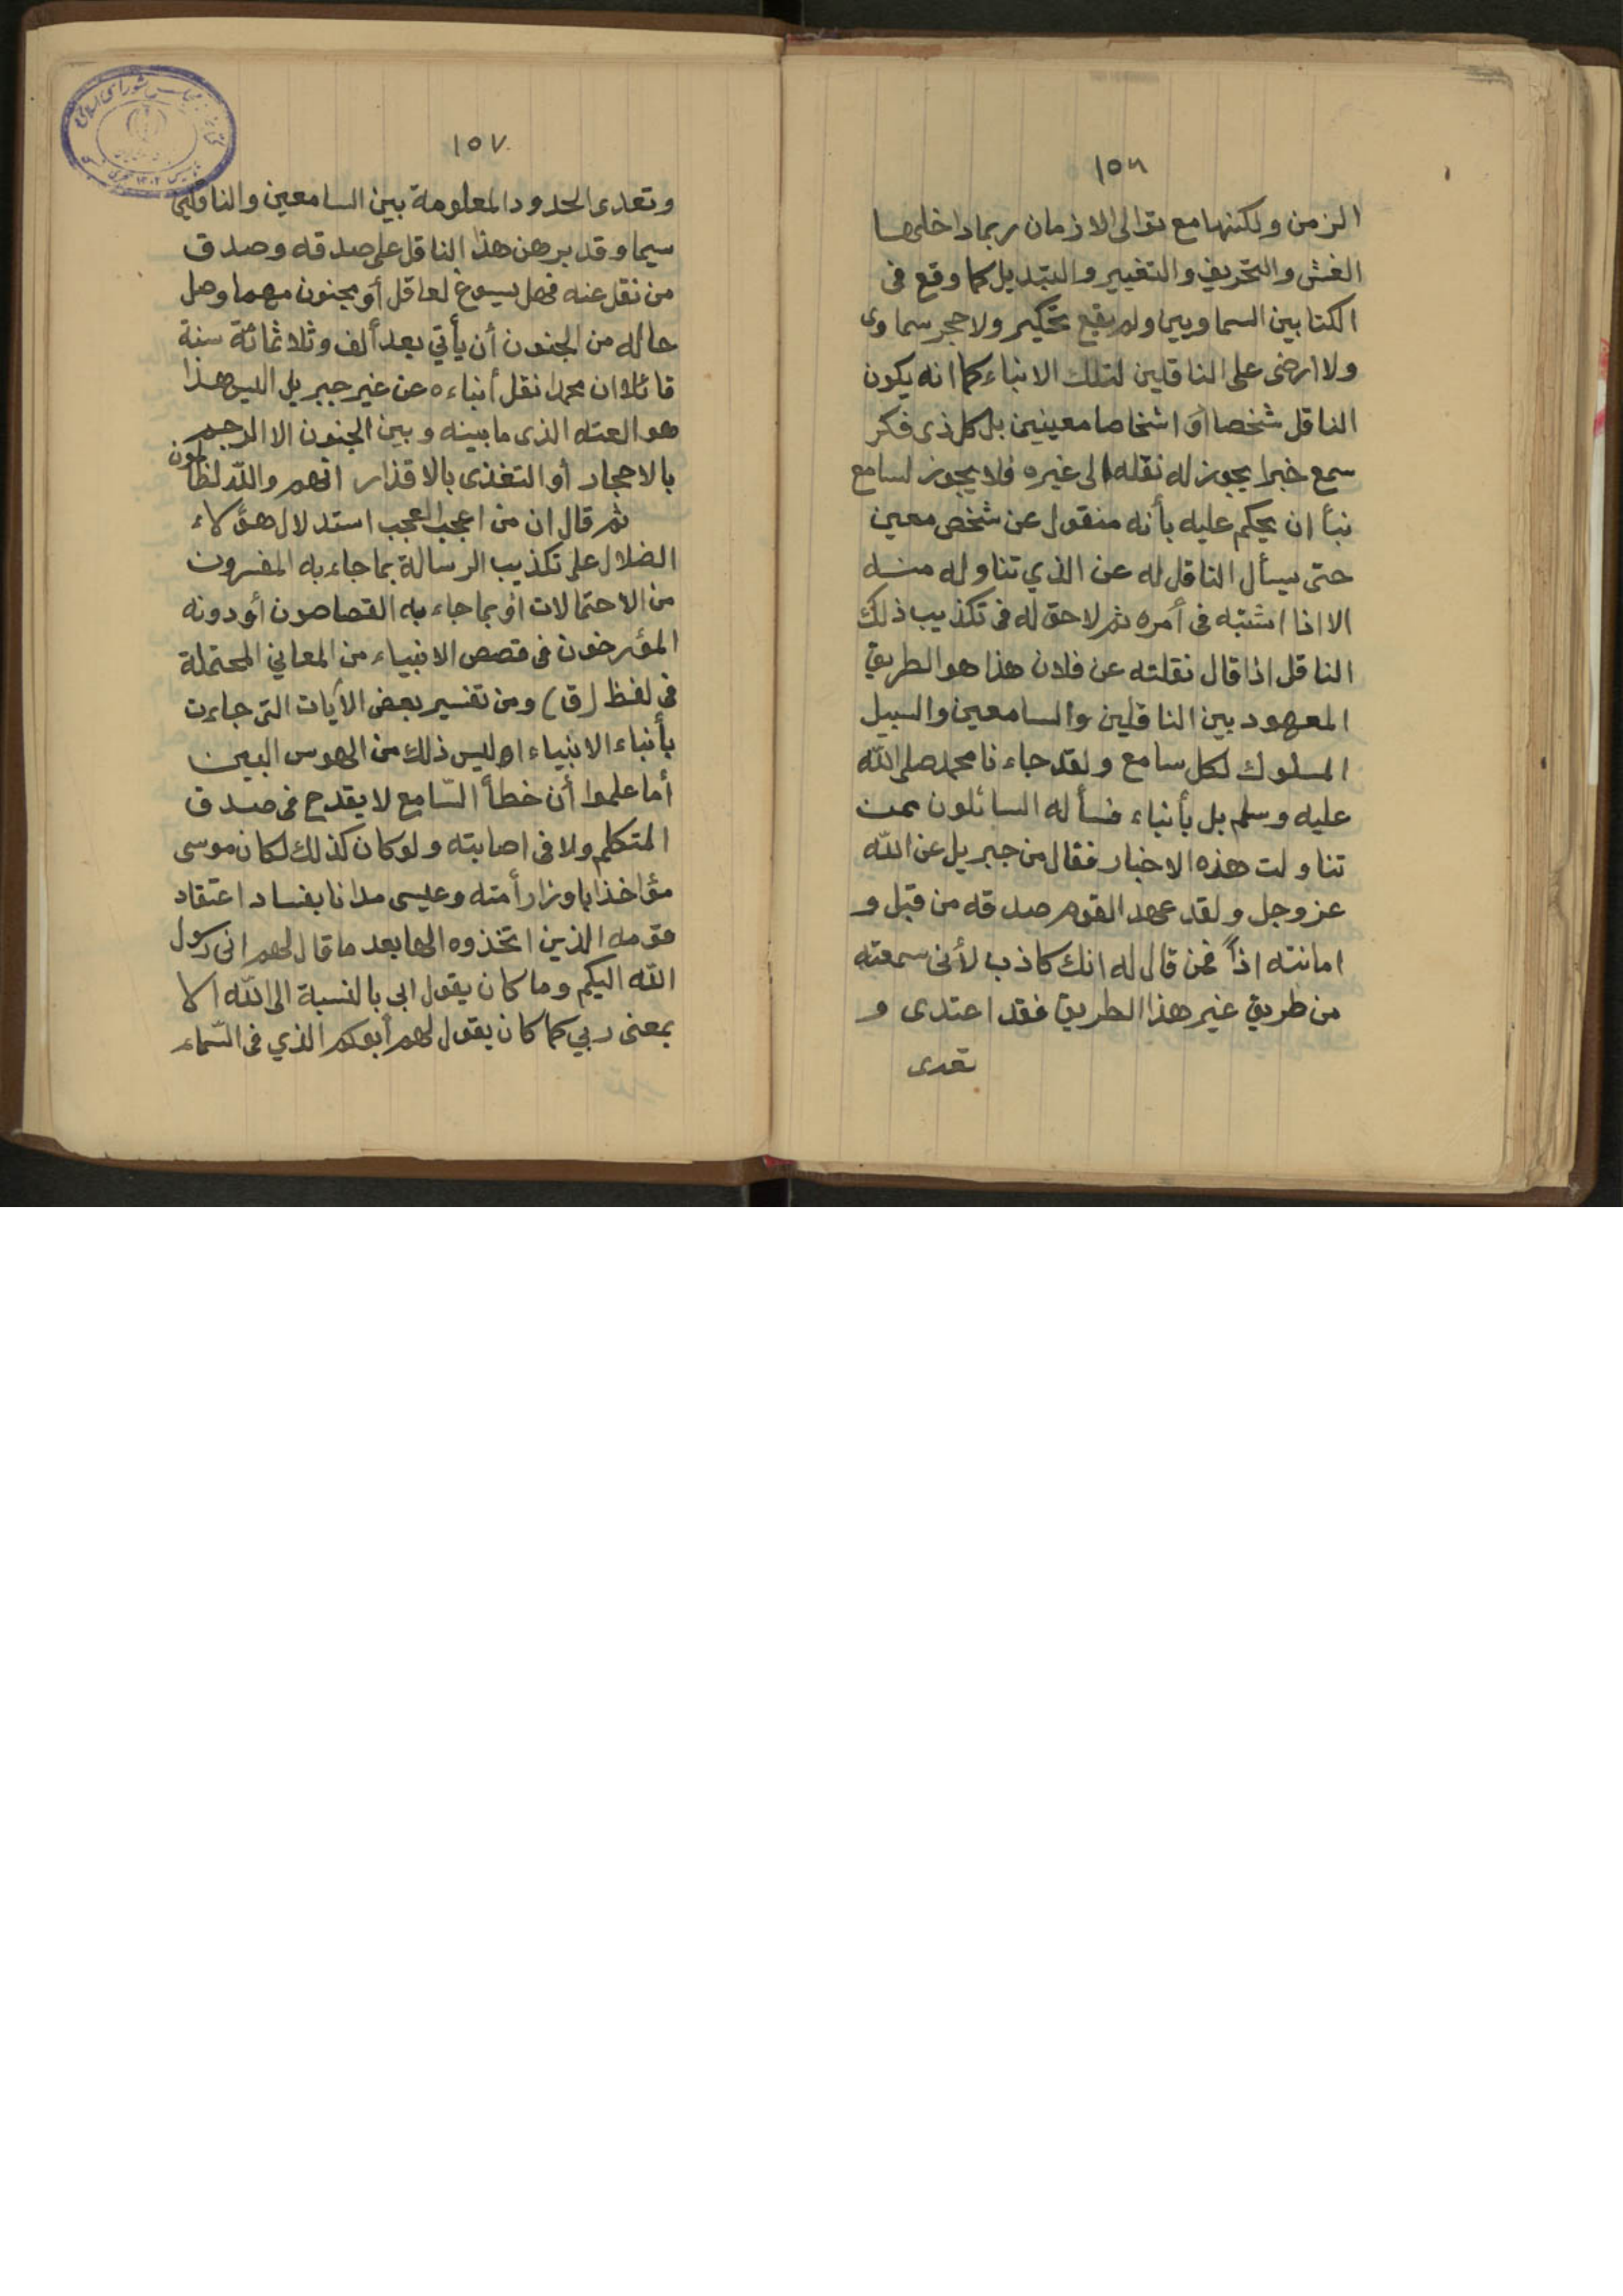 ١٥٦
الزمن ولكنها مع توالى الازمان ربما داخلها
الغش والتحريف والتغيير والتبديل كما وقع فى
الكتابين السماويين ولم يقع تحكير ولا حجر سماوى
ولا ارضى على الناقلين لتلك الانباء كما انه يكون
الناقل شخصا أو اشخاصا معينين بل كل ذى فكر
سمع خبرا يجوز له نقله الى غيره فلا يجوز لسامع
نبأ ان يحكم عليه بأنه منقول عن شخص معين
حتى يسأل الناقل له عن الذي تناوله منه
الا اذا اشتبه فى أمره ثم لا حق له فى تكذيب ذلك
الناقل اذا قال نقلته عن فلان هذا هو الطريق
المعهود بين الناقلين والسامعين والسبيل
المسلوك لكل سامع ولقد جاءنا محمد صلى الله
عليه وسلم بل بأنباء فسأله السائلون عمن
تناولت هذه الاخبار فقال من جبريل عن الله
عز وجل ولقد عهد القوم صدقه من قبل و
امانته اذاً فمن قال له انك كاذب لأنى سمعته
من طريق غير هذا الطريق فقد اعتدى و
تعدى
١٥٧
وتعدى الحدود المعلومة بين السامعين والناقلين
سيما وقد برهن هذا الناقل على صدقه وصدق
من نقل عنه فهل يسوغ لعاقل أو مجنون مهما وصل
حاله من الجنون أن يأتي بعد ألف وثلاثمائة سنة
قائلا ان محمدا نقل أنباءه عن غير جبريل اليس هذا
هو العته الذى ما بينه وبين الجنون الا الرجم
بالاحجار أو التغذى بالاقذار انهم والله لظالمون
ثم قال ان من اعجب العجب استدلال هؤلاء
الضلال على تكذيب الرسالة بما جاء به المفسرون
من الاحتمالات او بما جاء به القصاصون أو دونه
المؤرخون فى قصص الانبياء من المعاني المحتملة
فى لفظ (ق) ومن تفسير بعض الآيات التى جاءت
بأنباء الانبياء او ليس ذلك من الهوس البين
أما علموا أن خطأ السّامع لا يقدح فى صدق
المتكلم ولا فى اصابته ولو كان كذلك لكان موسى
مؤاخذا باوزار أمته وعيسى مدانا بفساد اعتقاد
قومه الذين اتخذوه الها بعد ما قال لهم انى رسول
الله اليكم وما كان يقول ابي بالنسبة الى الله الا
بمعنى ربي كما كان يقول لهم أبوكم الذي فى السّماء